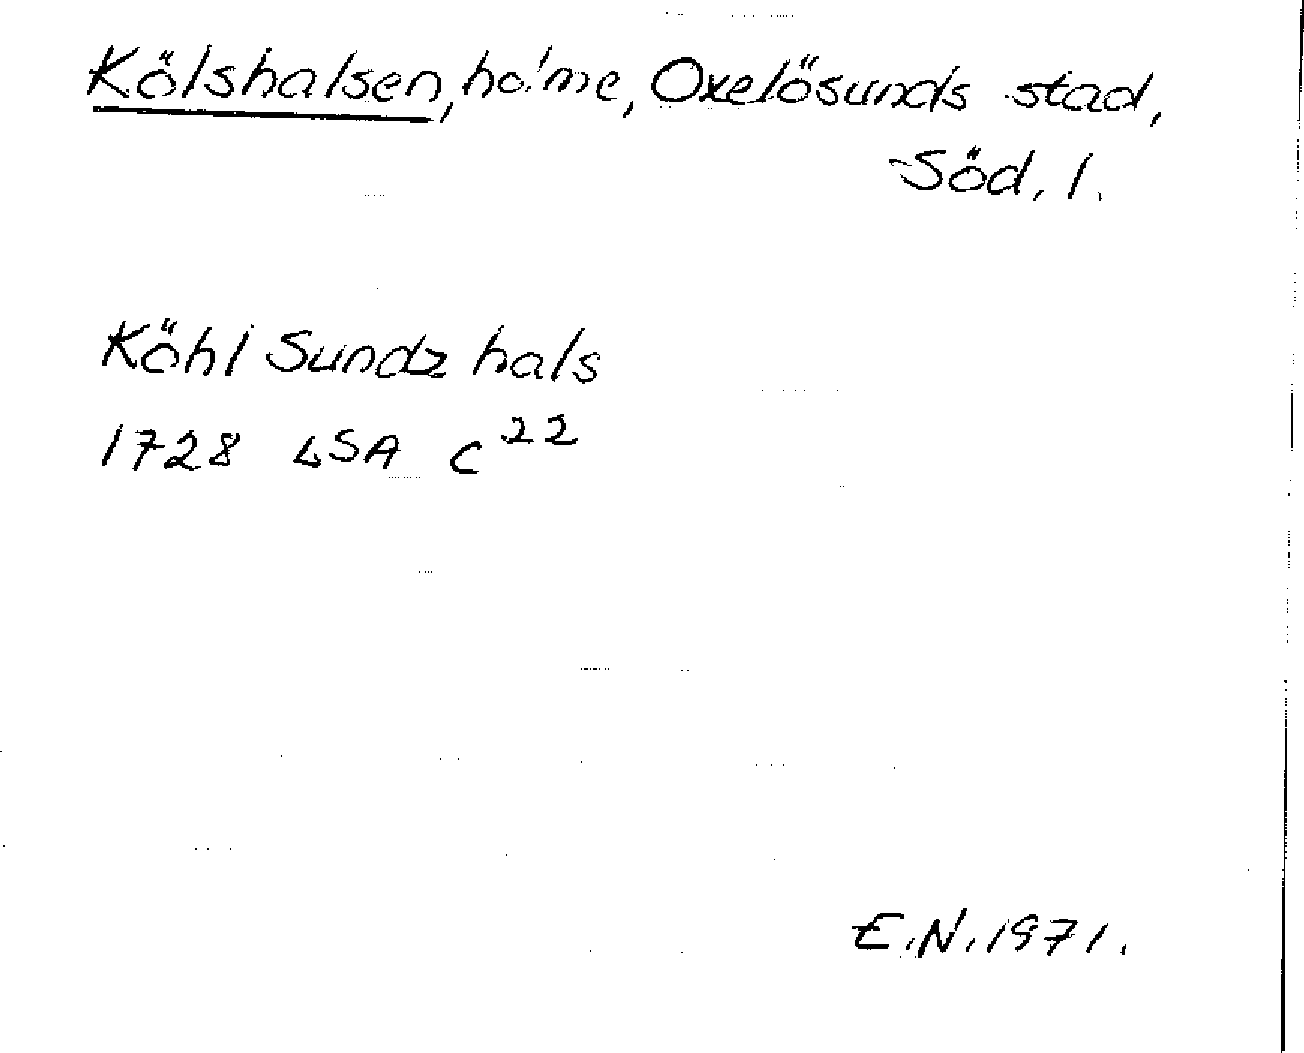 Kölshalsen, holme, Oxelösunds stad,
Söd. l.
Köhl Sundz hals
1728 LSA C²²
E.N. 1971.